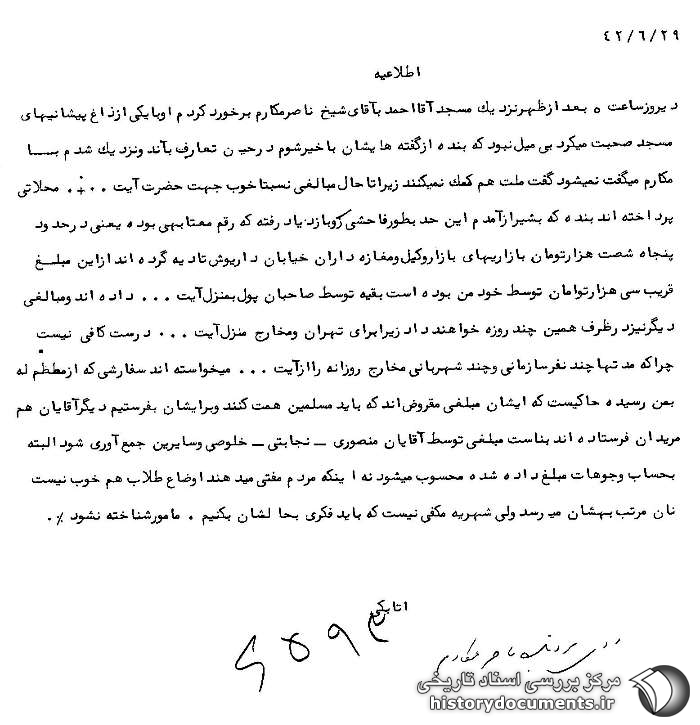 ٤٢/٦/٢٩
اطلاعیه
دیروز ساعت ٥ بعد از ظهر نزدیك مسجد آقا احمد باقای شیخ ناصر مكارم برخورد كردم او با یكی از داغ پیشانیهای
مسجد صحبت میكرد بی میل نبود كه بنده از گفته هایشان باخیر شوم در حین تعارف بآند و نزدیك شدم بـــا
مكارم میگفت نمیشود گفت ملت هم كمك نمیكنند زیرا تا حال مبالغی نسبتا خوب جهت حضرت آیت ... محلاتی
پرداخته اند بنده كه بشیراز آمدم این حد بطور فاحشی كروبا زدیاد رفته كه رقم معتابهی بوده یعنی در حدود
پنجاه شصت هزار تومان بازاریهای بازار وكیل و مغازه داران خیابان داریوش تادیه گرده اند از این مبلـــغ
قریب سی هزار توامان توسط خود من بوده است بقیه توسط صاحبان پول بمنزل آیت ... داده اند و مبالغی
دیگر نیز در ظرف همین چند روزه خواهند داد زیرا برای تهران و مخارج منزل آیت ... درست كافی نیست
چرا كه مدتها چند نفر سازمانی و چند شهربانی مخارج روزانه را از آیت ... میخواسته اند سفارشی كه از معظم له
بمن رسیده حاكیست كه ایشان مبلغی مقروض اند كه باید مسلمین همت كنند و برایشان بفرستیم دیگر آقایان هم
مریدان فرستاده اند بناست مبلغی توسط آقایان منصوری ــ نجابتی ــ خلوصی و سایرین جمع آوری شود البته
بحساب وجوهات مبلغ داده شده محسوب میشود نه اینكه مردم مفتی میدهند اوضاع طلاب هم خوب نیست
نان مرتب بهشان میرسد ولی شهریه مكفی نیست كه باید فكری بحالشان بكنیم . مامور شناخته نشود ٪.
اتابكی
ناصر مكارم
مرکز بررسی اسناد تاریخی
historydocuments.ir